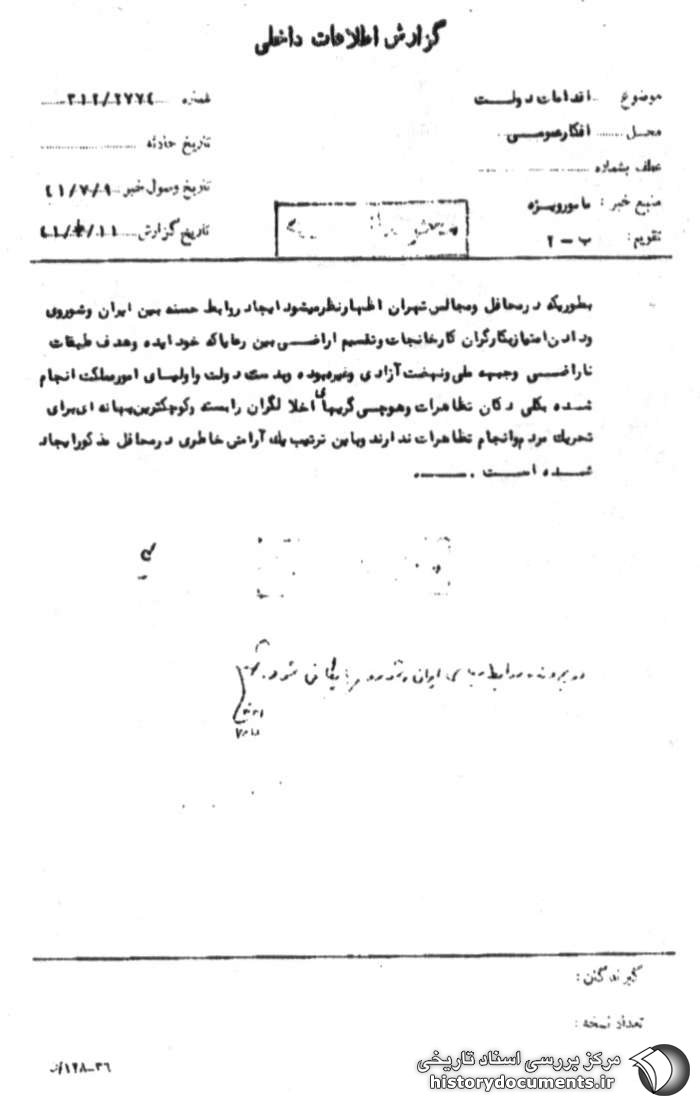 گزارش اطلاعات داخلی
موضوع اقدامات دولت
شماره ۳۱۲/۲۷۷٤
محل افکار عمومی
تاریخ حادثه
عطف بشماره
تاریخ وصول خبر ٤۱/۷/۹
منبع خبر : مامور ویژه
تاریخ گزارش ٤۱/۷/۱۱
تقویم : ب - ۲
بطوریکه در محافل ومجالس تهران اظهار نظر میشود ایجاد روابط حسنه بین ایران وشوروی
ودادن امتیاز بکارگران کارخانجات وتقسیم اراضی بین رعایا که خود ایده وهدف طبقات
ناراضی وجبهه ملی ونهضت آزادی وغیره بوده وبدست دولت واولیای امور مملکت انجام
شده بکلی دکان تظاهرات وهوچی گریهای اخلا لگران رابسته وکوچکترین بهانه ای برای
تحریك مردم وانجام تظاهرات ندارند وباین ترتیب یك آرامش خاطری در محافل مذکور ایجاد
شده است .
در پرونده روابط سیاسی ایران و شوروی بایگانی شود
گیرندگان :
تعداد نسخه :
۱۲۸-۳۶
مرکز بررسی اسناد تاریخی
historydocuments.ir